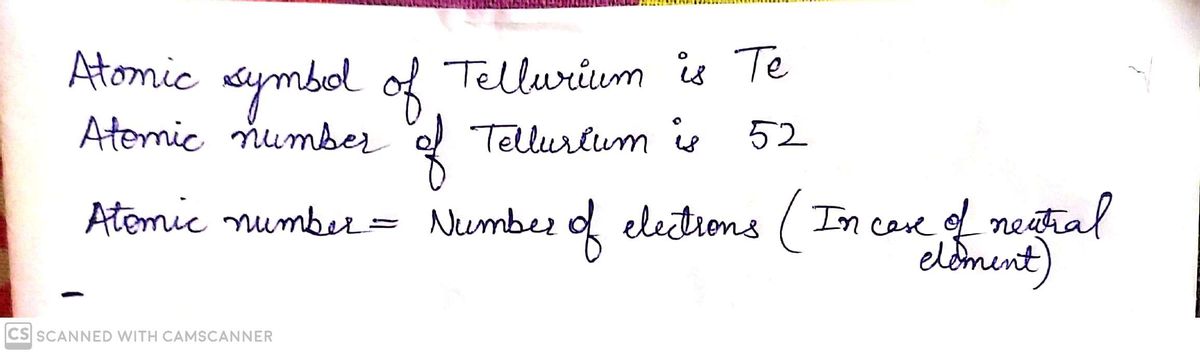 Atomic symbol of Tellurium is Te
Atomic number of Tellurium is 52
Atomic number = Number of electrons (In case of neutral
element)
-
CS SCANNED WITH CAMSCANNER